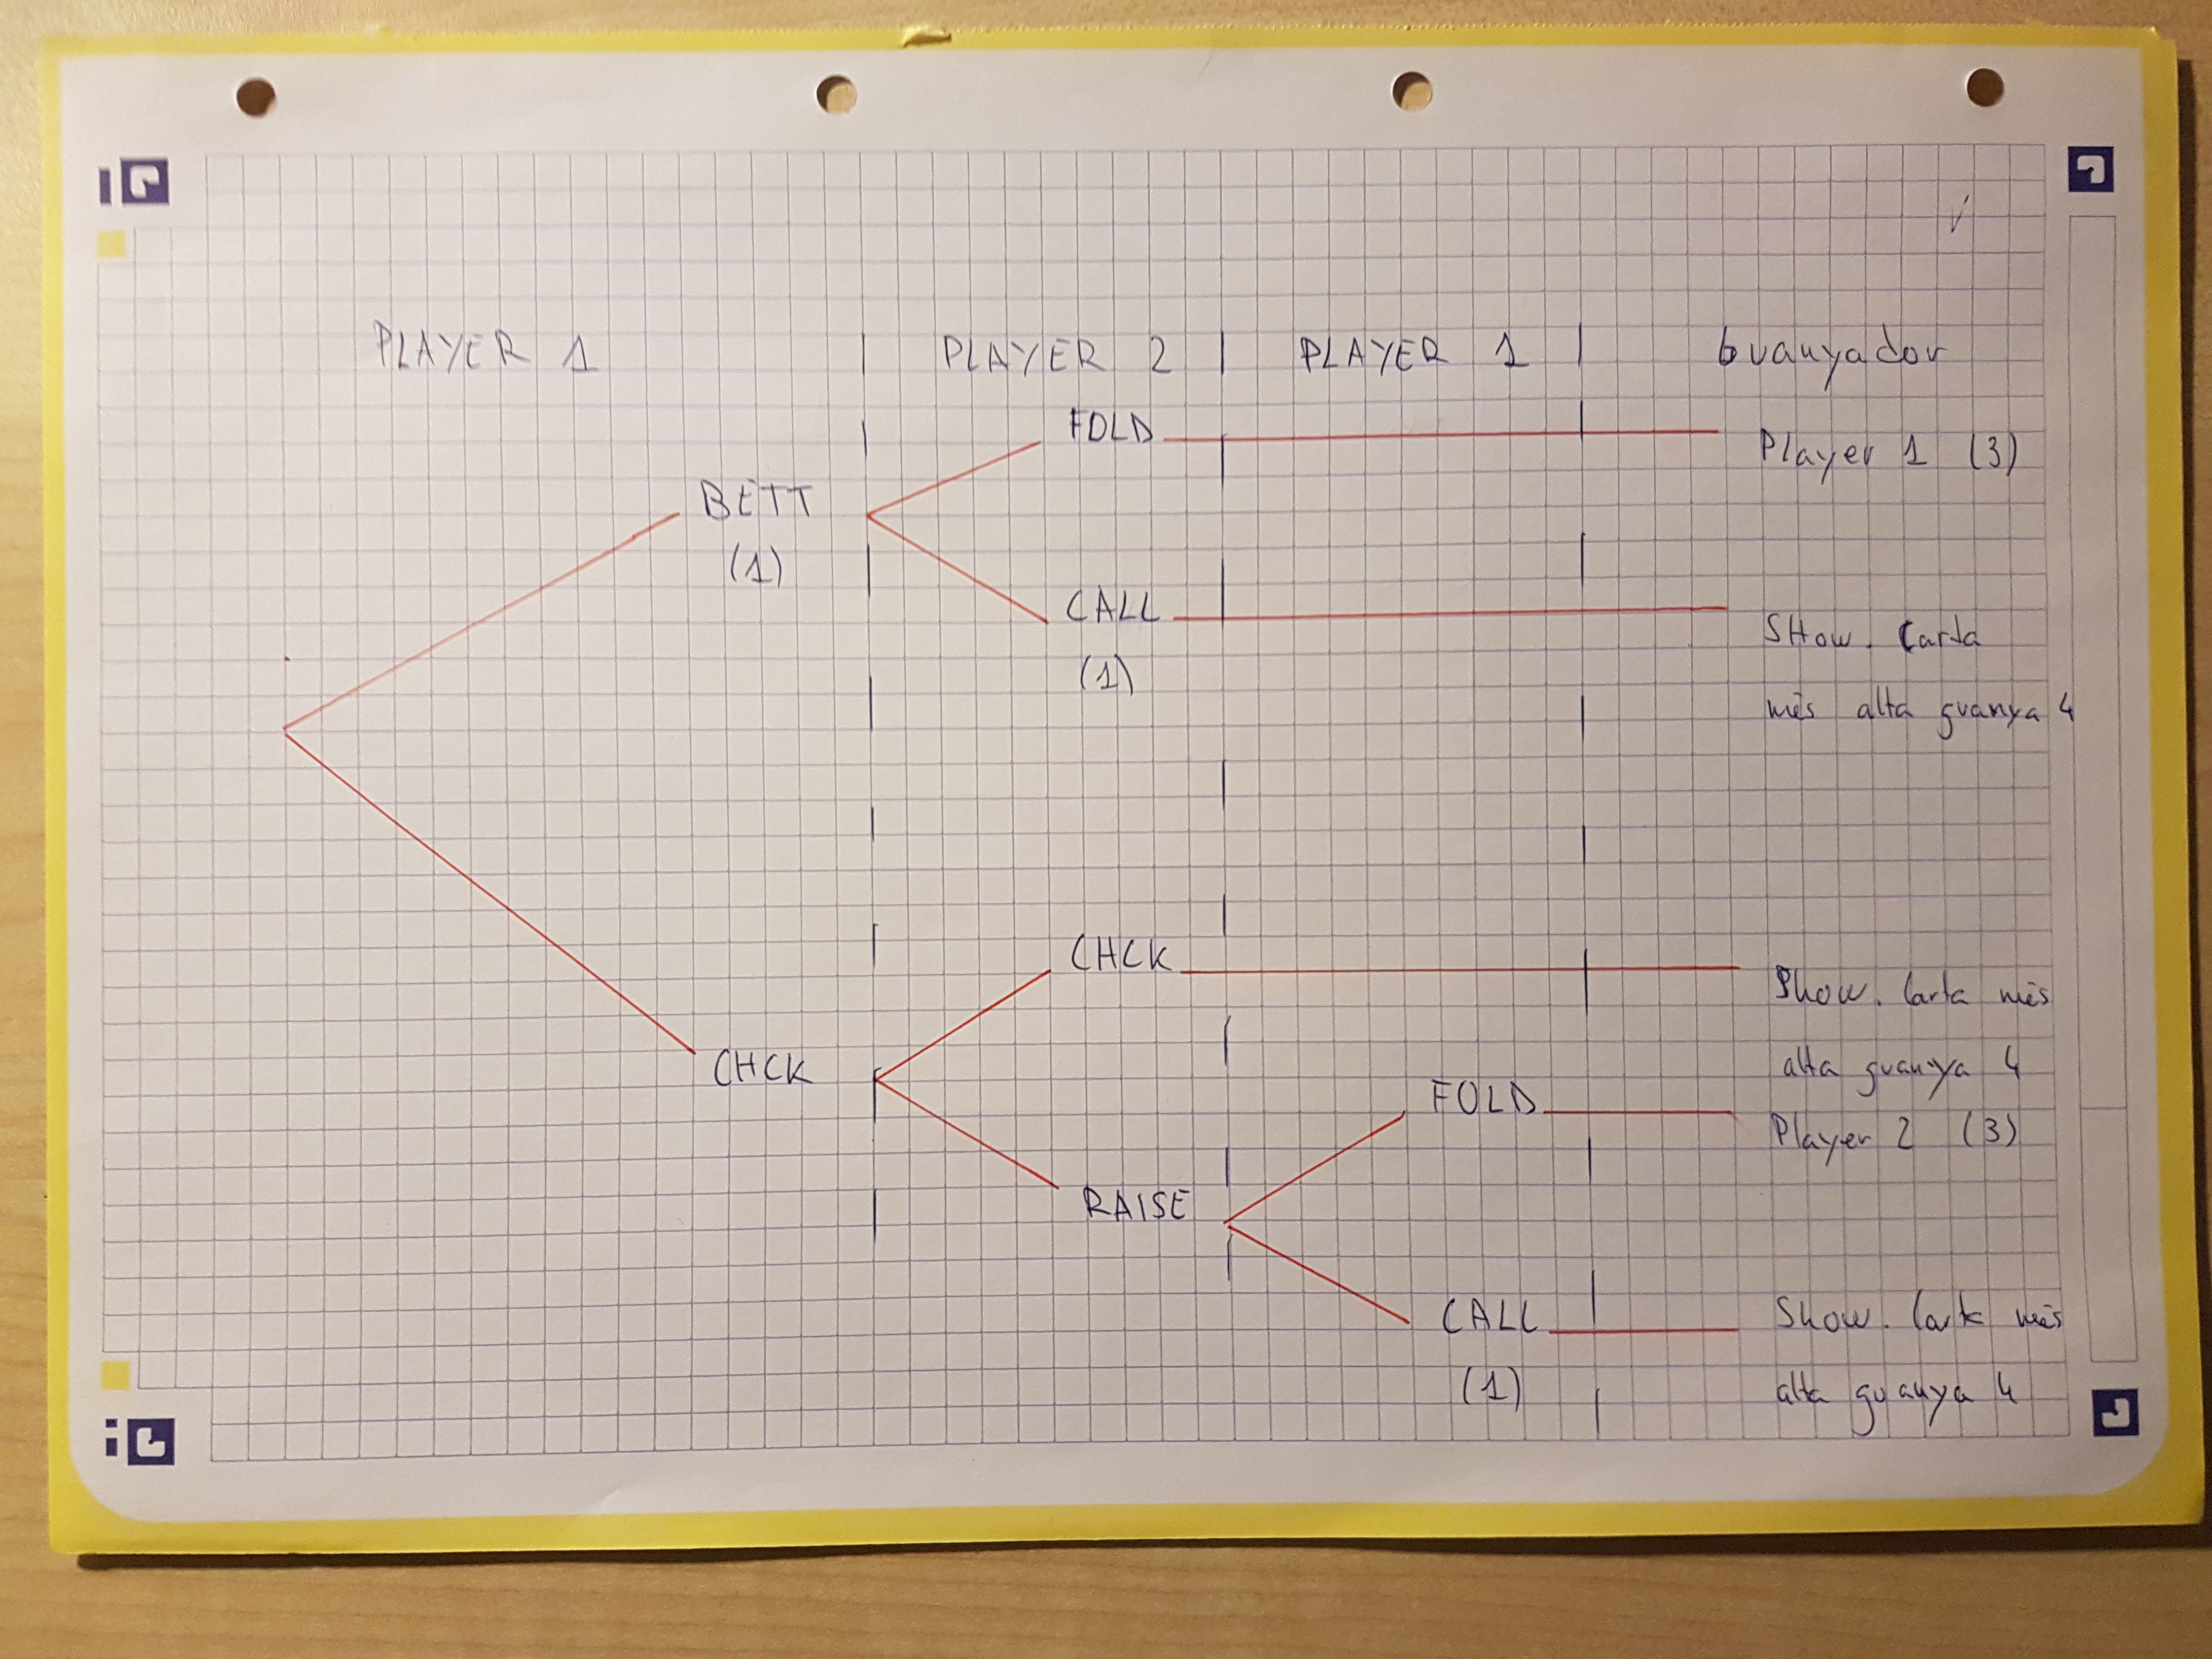 PLAYER 1 PLAYER 2 PLAYER 1 Guanyador
FOLD Player 1 (3)
BETT
(1)
CALL Show. Carta
(1) més alta guanya 4
CHCK Show. Carta més
alta guanya 4
CHCK
FOLD Player 2 (3)
RAISE
CALL Show. Carta més
(1) alta guanya 4